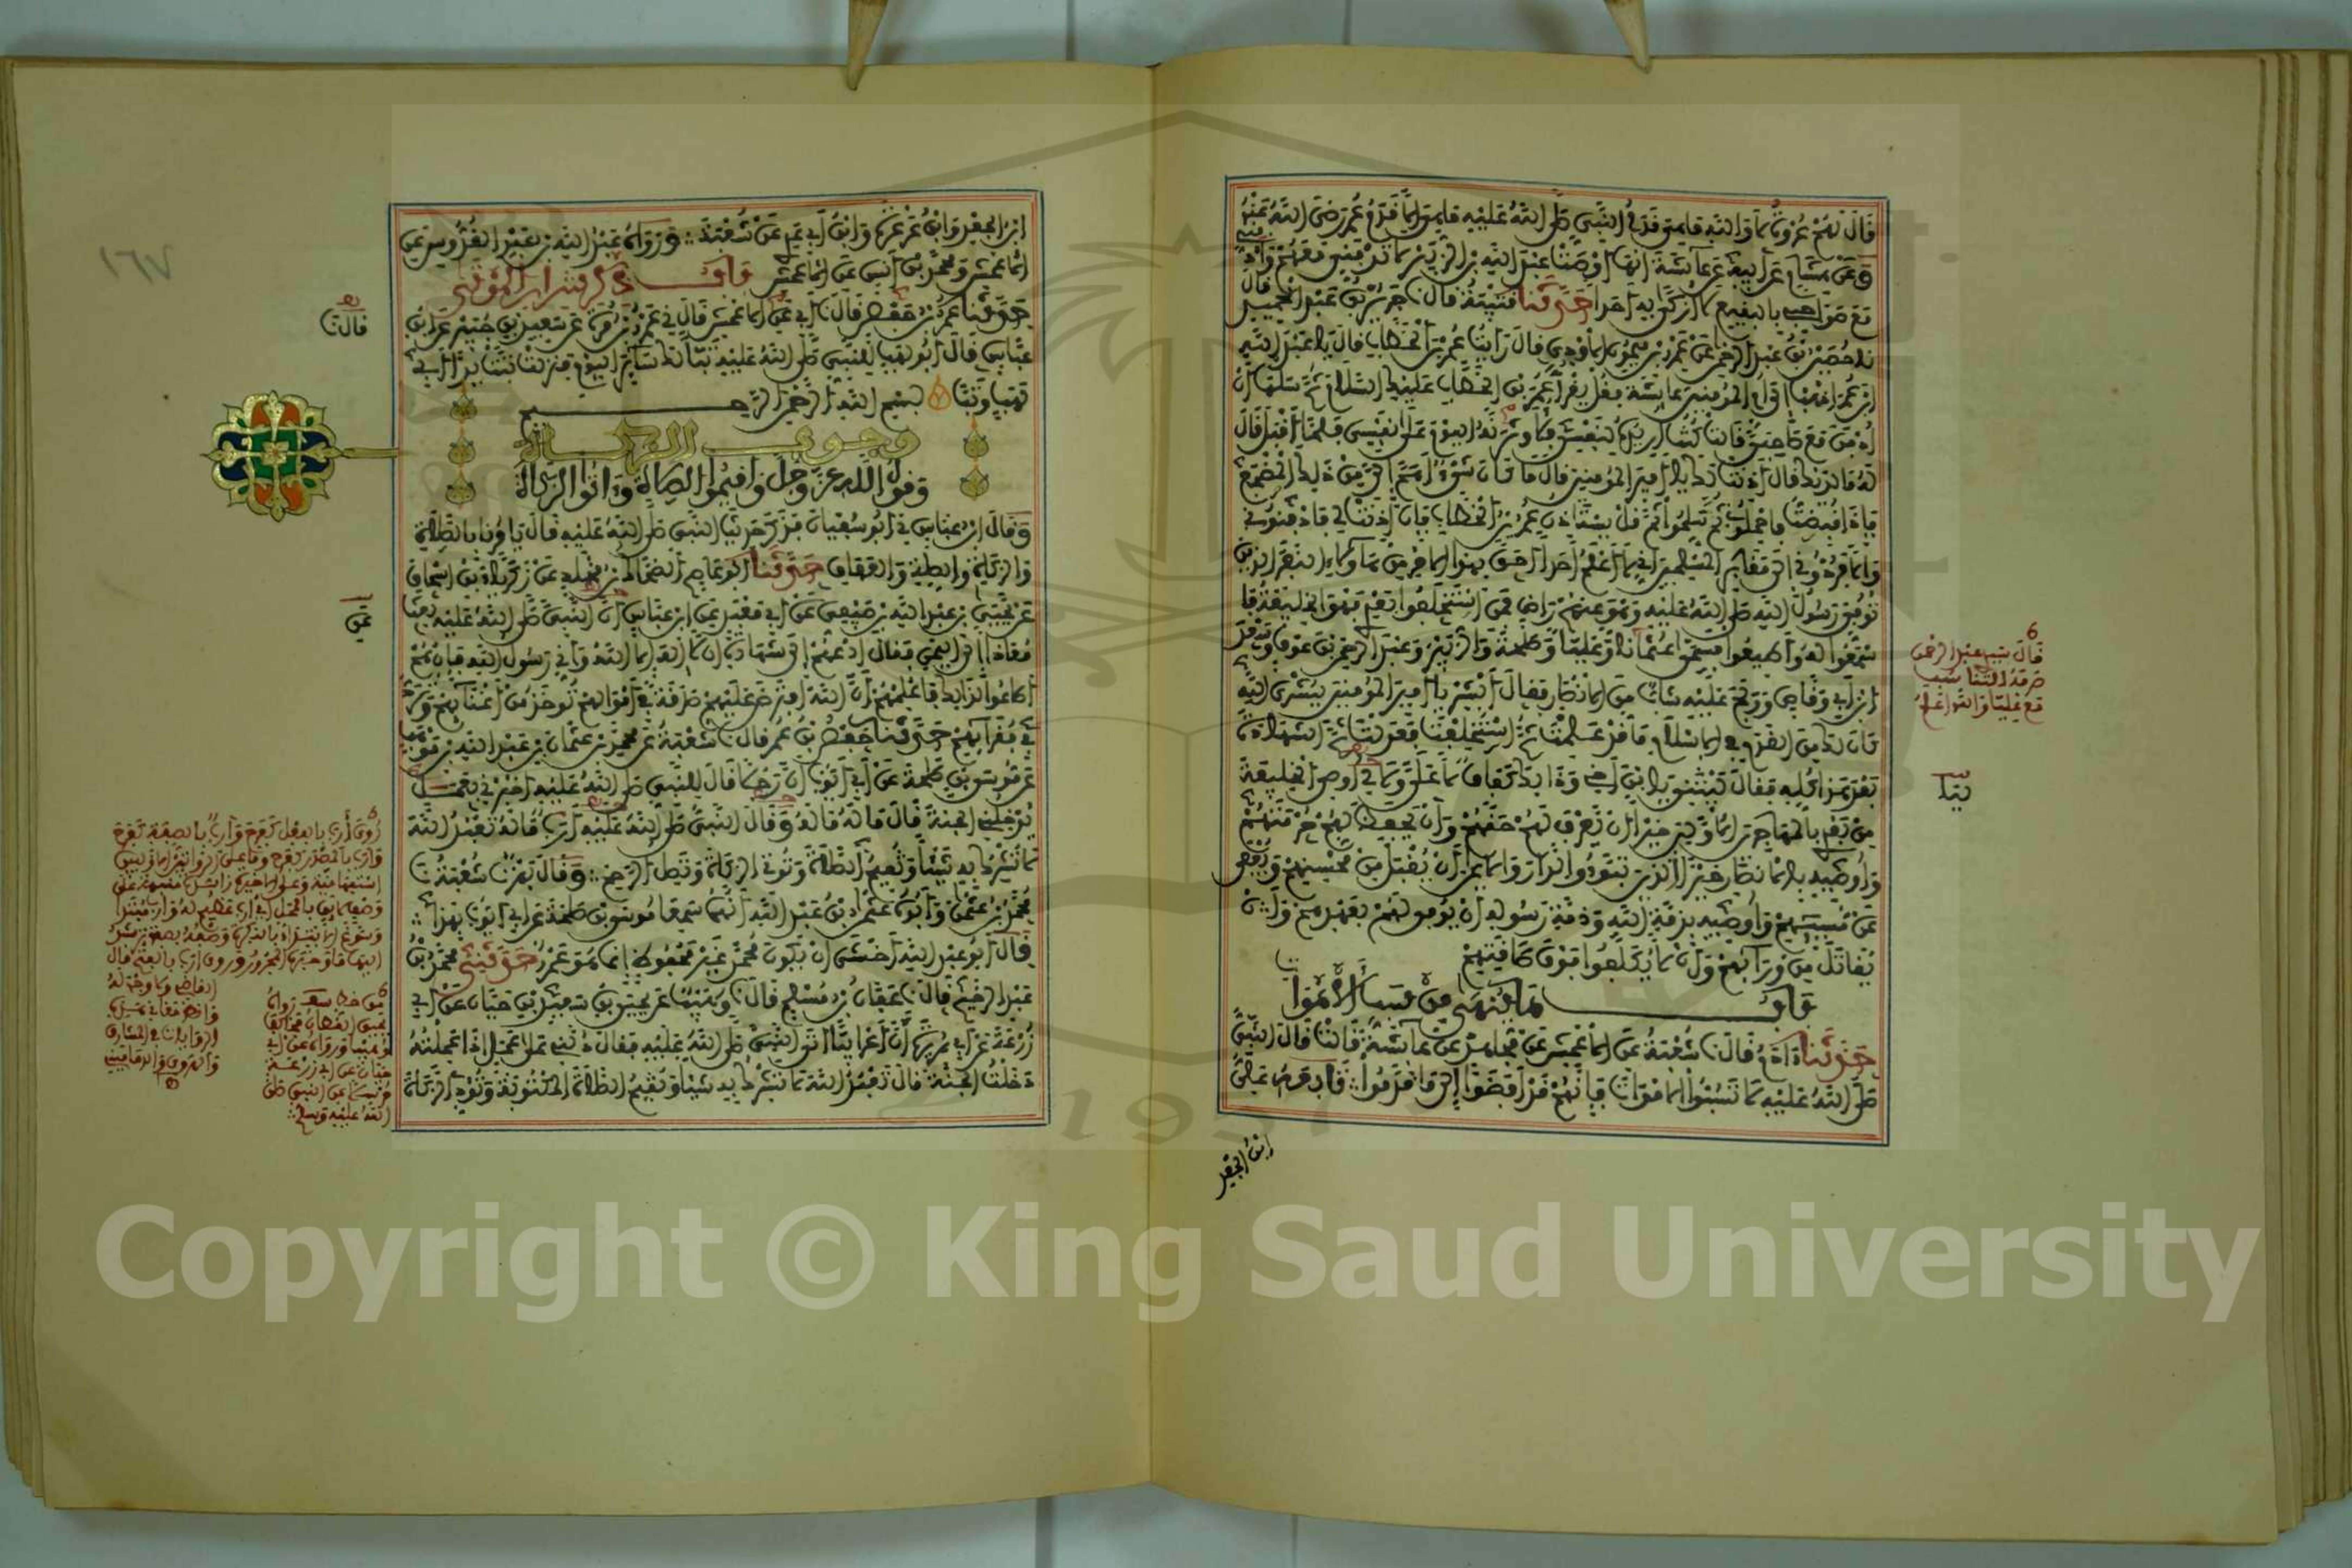 قال لهم عروة لا والله ما هي قدم النبي صلى الله عليه ما هي إلا قدم عمر رضي الله عنه
وعن هشام عن أبيه عن عائشة أنها أوصت عبد الله بن الزبير لا تدفني معهم وادفني
مع صواحبي بالبقيع لا أزكى به أبدا حدثنا قتيبة قال نا جرير بن عبد الحميد قال
نا حصين بن عبد الرحمن عن عمرو بن ميمون الأودي قال رأيت عمر بن الخطاب قال يا عبد الله
ابن عمر اذهب إلى أم المؤمنين عائشة فقل يقرأ عمر بن الخطاب عليك السلام ثم سلها أن
أدفن مع صاحبي قالت كنت أريده لنفسي فلأوثرنه اليوم على نفسي فلما أقبل قال
له ما لديك قال أذنت لك يا أمير المؤمنين قال ما كان شيء أهم إلي من ذلك المضجع
فإذا قبضت فاحملوني ثم سلموا ثم قل يستأذن عمر بن الخطاب فإن أذنت لي فادفنوني
وإلا فردوني إلى مقابر المسلمين إني لا أعلم أحدا أحق بهذا الأمر من هؤلاء النفر الذين
توفي رسول الله صلى الله عليه وهو عنهم راض فمن استخلفوا بعدي فهو الخليفة فا
سمعوا له وأطيعوا فسمى عثمان وعليا وطلحة والزبير وعبد الرحمن بن عوف وسعد
ابن أبي وقاص وولج عليه شاب من الأنصار فقال أبشر يا أمير المؤمنين ببشرى الله
كان لك من القدم في الإسلام ما قد علمت ثم استخلفت فعدلت ثم الشهادة
بعد هذا كله فقال ليتني يا ابن أخي وذلك كفافا لا علي ولا لي أوصي الخليفة
من بعدي بالمهاجرين الأولين خيرا أن يعرف لهم حقهم وأن يحفظ لهم حرمتهم
وأوصيه بالأنصار خيرا الذين تبوءوا الدار والإيمان أن يقبل من محسنهم ويعفى
عن مسيئهم وأوصيه بذمة الله وذمة رسوله أن يوفى لهم بعهدهم وأن
يقاتل من ورائهم وأن لا يكلفوا فوق طاقتهم
باب ما ينهى من سب الأموات
حدثنا آدم قال نا شعبة عن الأعمش عن مجاهد عن عائشة قالت قال النبي
صلى الله عليه لا تسبوا الأموات فإنهم قد أفضوا إلى ما قدموا تابعه علي
ابن الجعد
قال
بيا
ابن الجعد وابن عرعرة وابن أبي عدي عن شعبة ورواه عبد الله بن عبد القدوس عن
الأعمش ومحمد بن أنس عن الأعمش باب ذكر شرار الموتى
حدثنا عمر بن حفص قال نا أبي عن الأعمش قال ني عمرو بن مرة عن سعيد بن جبير عن ابن
عباس قال أبو لهب للنبي صلى الله عليه تبا لك سائر اليوم فنزلت تبت يدا أبي
لهب وتب بسم الله الرحمن الرحيم
وجوب الزكاة
وقول الله عز وجل وأقيموا الصلاة وآتوا الزكاة
وقال ابن عباس ني أبو سفيان فذكر حديث النبي صلى الله عليه قال يأمرنا بالصلاة
والزكاة والصلة والعفاف حدثنا أبو عاصم الضحاك بن مخلد عن زكرياء بن إسحاق
عن يحيى بن عبد الله بن صيفي عن أبي معبد عن ابن عباس أن النبي صلى الله عليه بعث
معاذا إلى اليمن فقال ادعهم إلى شهادة أن لا إله إلا الله وأني رسول الله فإن هم
أطاعوا لذلك فأعلمهم أن الله افترض عليهم صدقة في أموالهم تؤخذ من أغنيائهم وترد
في فقرائهم حدثنا حفص بن عمر قال نا شعبة عن محمد بن عثمان بن عبد الله بن موهب
عن موسى بن طلحة عن أبي أيوب أن رجلا قال للنبي صلى الله عليه أخبرني بعمل
يدخلني الجنة قال ما له ما له وقال النبي صلى الله عليه أرب ما له تعبد الله
لا تشرك به شيئا وتقيم الصلاة وتؤتي الزكاة وتصل الرحم وقال بهز نا شعبة نا
محمد بن عثمان وأبوه عثمان بن عبد الله أنهما سمعا موسى بن طلحة عن أبي أيوب بهذا
قال أبو عبد الله أخشى أن يكون محمد غير محفوظ إنما هو عمرو حدثني محمد بن
عبد الرحيم قال نا عفان بن مسلم قال نا وهيب عن يحيى بن سعيد بن حيان عن أبي
زرعة عن أبي هريرة أن أعرابيا أتى النبي صلى الله عليه فقال دلني على عمل إذا عملته
دخلت الجنة قال تعبد الله لا تشرك به شيئا وتقيم الصلاة المكتوبة وتؤدي الزكاة
قالت
عن
١٦٧
Copyright © King Saud University